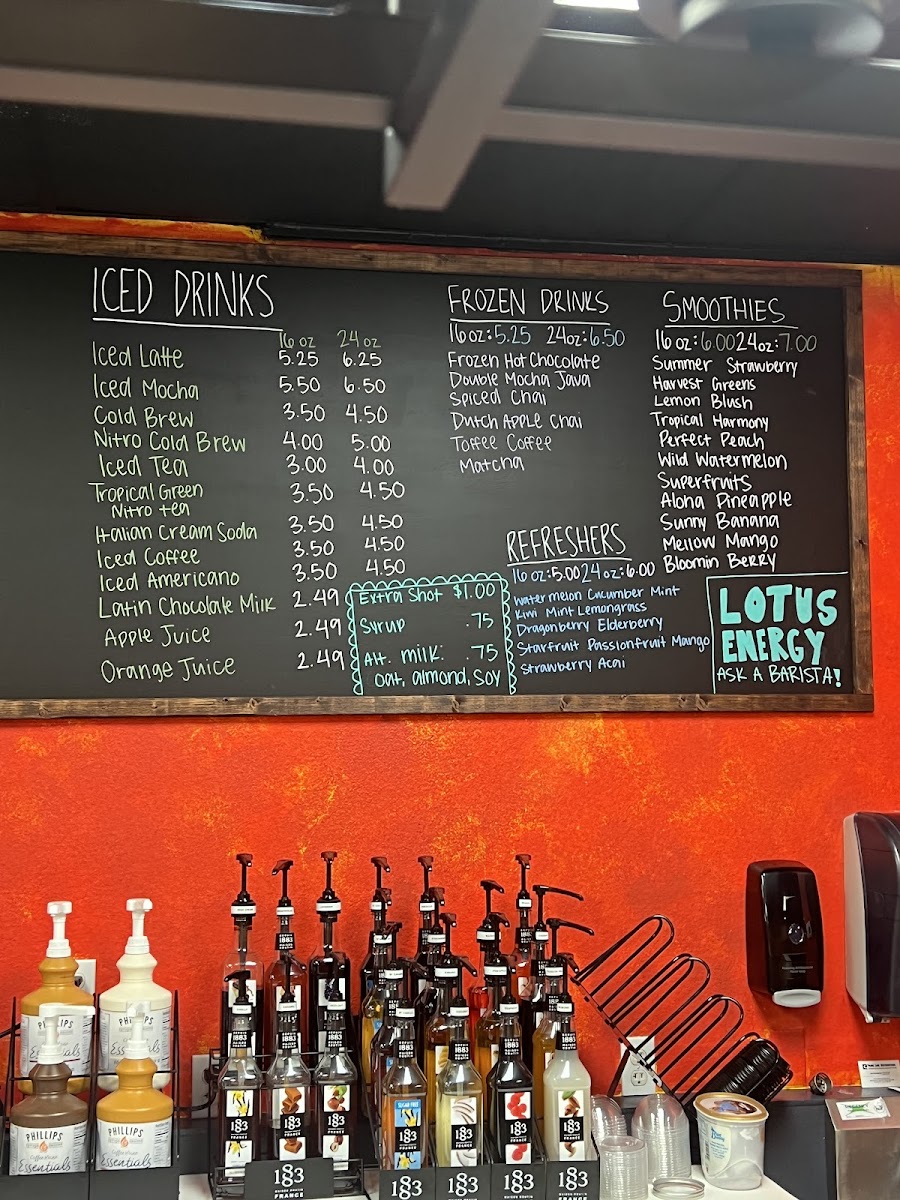 ICED DRINKS
16 oz 24 oz
Iced Latte 5.25 6.25
Iced Mocha 5.50 6.50
Cold Brew 3.50 4.50
Nitro Cold Brew 4.00 5.00
Iced Tea 3.00 4.00
Tropical Green 3.50 4.50
Nitro tea
Italian Cream Soda 3.50 4.50
Iced Coffee 3.50 4.50
Iced Americano 3.50 4.50
Latin Chocolate Milk 2.49
Apple Juice 2.49
Orange Juice 2.49
Extra Shot $1.00
Syrup .75
Alt. milk. .75
oat, almond, soy
FROZEN DRINKS
16 oz: 5.25 24oz: 6.50
Frozen Hot Chocolate
Double Mocha Java
Spiced Chai
Dutch Apple Chai
Toffee Coffee
Matcha
REFRESHERS
16 oz: 5.00 24 oz: 6.00
Watermelon Cucumber Mint
Kiwi Mint Lemongrass
Dragonberry Elderberry
Starfruit Passionfruit Mango
Strawberry Acai
SMOOTHIES
16 oz: 6.00 24oz: 7.00
Summer Strawberry
Harvest Greens
Lemon Blush
Tropical Harmony
Perfect Peach
Wild Watermelon
Superfruits
Aloha Pineapple
Sunny Banana
Mellow Mango
Bloomin Berry
LOTUS
ENERGY
ASK A BARISTA!
PHILLIPS
Essentials
PHILLIPS
Essentials
1883
1883
1883
1883
1883
1883
1883
1883
FRANCE
1883
1883
1883
1883